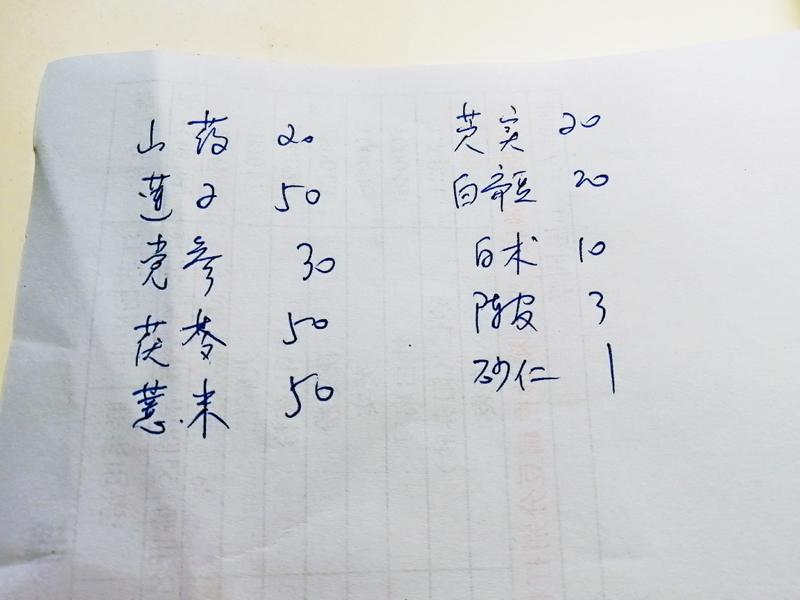 山药 20
莲子 50
党参 30
茯苓 50
薏米 50
芡实 20
白帝豆 20
白术 10
陈皮 3
砂仁 1